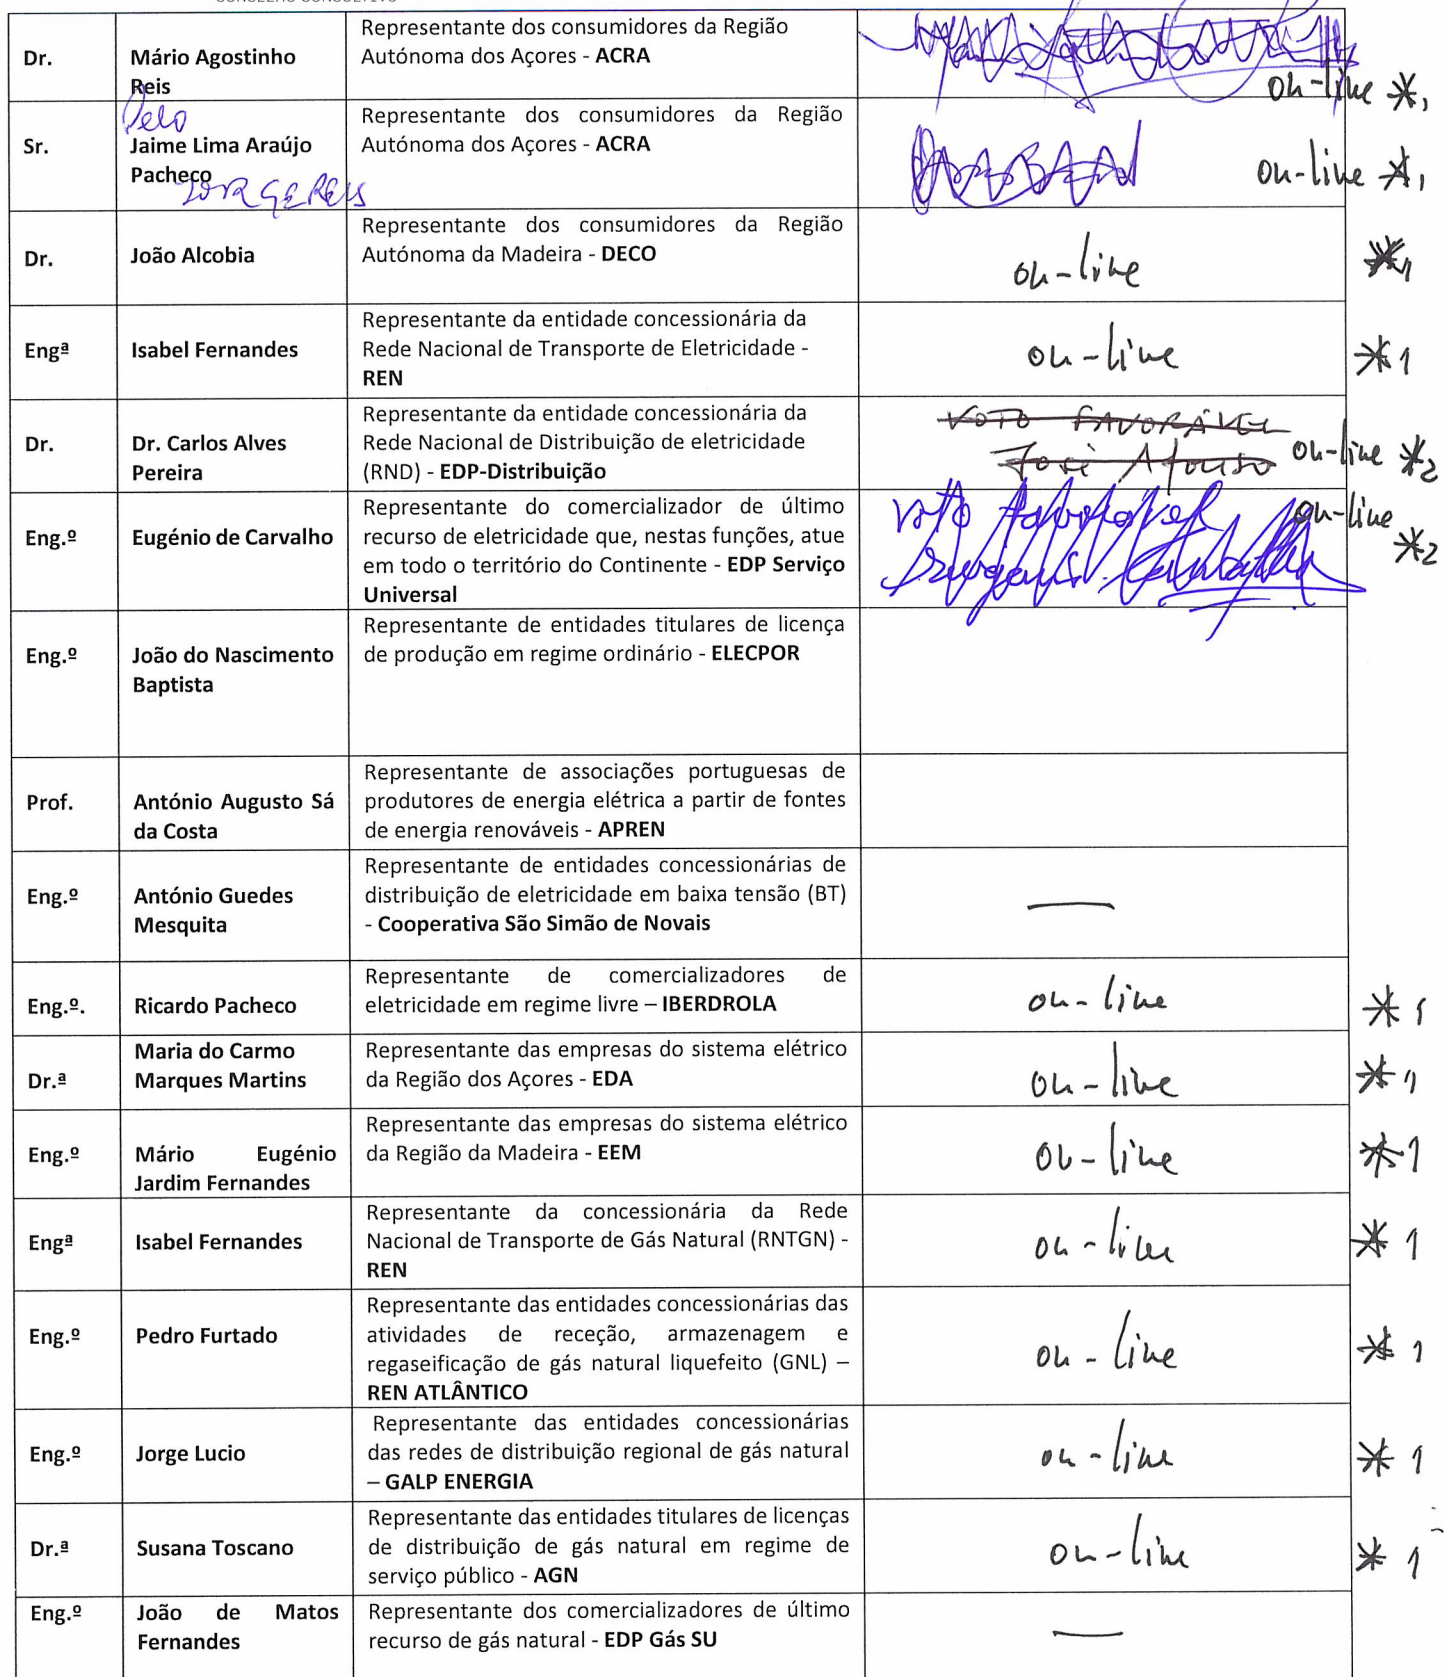 CONSELHO CONSULTIVO
Dr.
Mário Agostinho
Reis
Representante dos consumidores da Região
Autónoma dos Açores - ACRA
on-line *1
Sr.
Pelo
Jaime Lima Araújo
Pacheco
JORGE REIS
Representante dos consumidores da Região
Autónoma dos Açores - ACRA
on-line *1
Dr.
João Alcobia
Representante dos consumidores da Região
Autónoma da Madeira - DECO
on-line *1
Engª
Isabel Fernandes
Representante da entidade concessionária da
Rede Nacional de Transporte de Eletricidade -
REN
on-line *1
Dr.
Dr. Carlos Alves
Pereira
Representante da entidade concessionária da
Rede Nacional de Distribuição de eletricidade
(RND) - EDP-Distribuição
VOTO FAVORÁVEL
José Afonso on-line *2
Eng.º
Eugénio de Carvalho
Representante do comercializador de último
recurso de eletricidade que, nestas funções, atue
em todo o território do Continente - EDP Serviço
Universal
Voto Favorável on-line
*2
Eng.º
João do Nascimento
Baptista
Representante de entidades titulares de licença
de produção em regime ordinário - ELECPOR
Prof.
António Augusto Sá
da Costa
Representante de associações portuguesas de
produtores de energia elétrica a partir de fontes
de energia renováveis - APREN
Eng.º
António Guedes
Mesquita
Representante de entidades concessionárias de
distribuição de eletricidade em baixa tensão (BT)
- Cooperativa São Simão de Novais
—
Eng.º.
Ricardo Pacheco
Representante de comercializadores de
eletricidade em regime livre – IBERDROLA
on-line *1
Dr.ª
Maria do Carmo
Marques Martins
Representante das empresas do sistema elétrico
da Região dos Açores - EDA
on-line *1
Eng.º
Mário Eugénio
Jardim Fernandes
Representante das empresas do sistema elétrico
da Região da Madeira - EEM
on-line *1
Engª
Isabel Fernandes
Representante da concessionária da Rede
Nacional de Transporte de Gás Natural (RNTGN) -
REN
on-line *1
Eng.º
Pedro Furtado
Representante das entidades concessionárias das
atividades de receção, armazenagem e
regaseificação de gás natural liquefeito (GNL) –
REN ATLÂNTICO
on-line *1
Eng.º
Jorge Lucio
Representante das entidades concessionárias
das redes de distribuição regional de gás natural
– GALP ENERGIA
on-line *1
Dr.ª
Susana Toscano
Representante das entidades titulares de licenças
de distribuição de gás natural em regime de
serviço público - AGN
on-line *1
Eng.º
João de Matos
Fernandes
Representante dos comercializadores de último
recurso de gás natural - EDP Gás SU
—